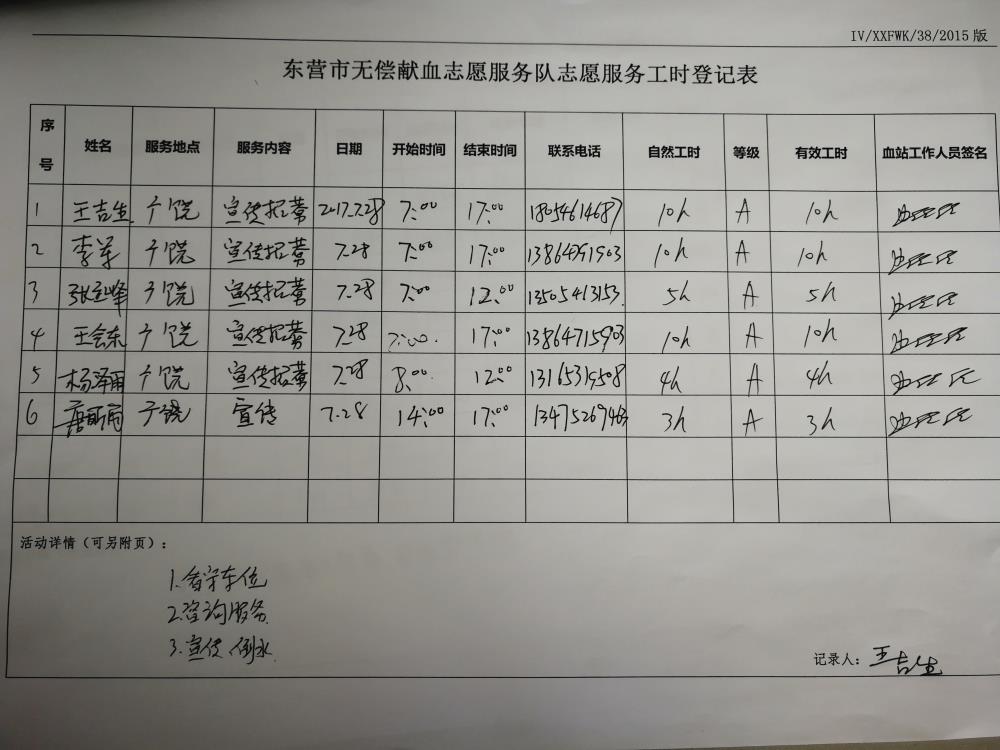 IV/XXFWK/38/2015版
东营市无偿献血志愿服务队志愿服务工时登记表
序号 姓名 服务地点 服务内容 日期 开始时间 结束时间 联系电话 自然工时 等级 有效工时 血站工作人员签名
1 王吉生 宣传招募 2017.7.28 7:00 17:00 18054614687 10h A 10h
2 李军 宣传招募 7.28 7:00 17:00 10h A 10h
3 宣传招募 7.28 7:00 12:00 13505413153 5h A 5h
4 王会东 宣传招募 7.28 7:00 17:00 13864715903 10h A 10h
5 宣传招募 7.28 8:00 12:00 4h A 4h
6 宣传 7.28 14:00 17:00 3h A 3h
活动详情（可另附页）：
1.看守车位
2.咨询服务
3.宣传 倒水
记录人：王吉生